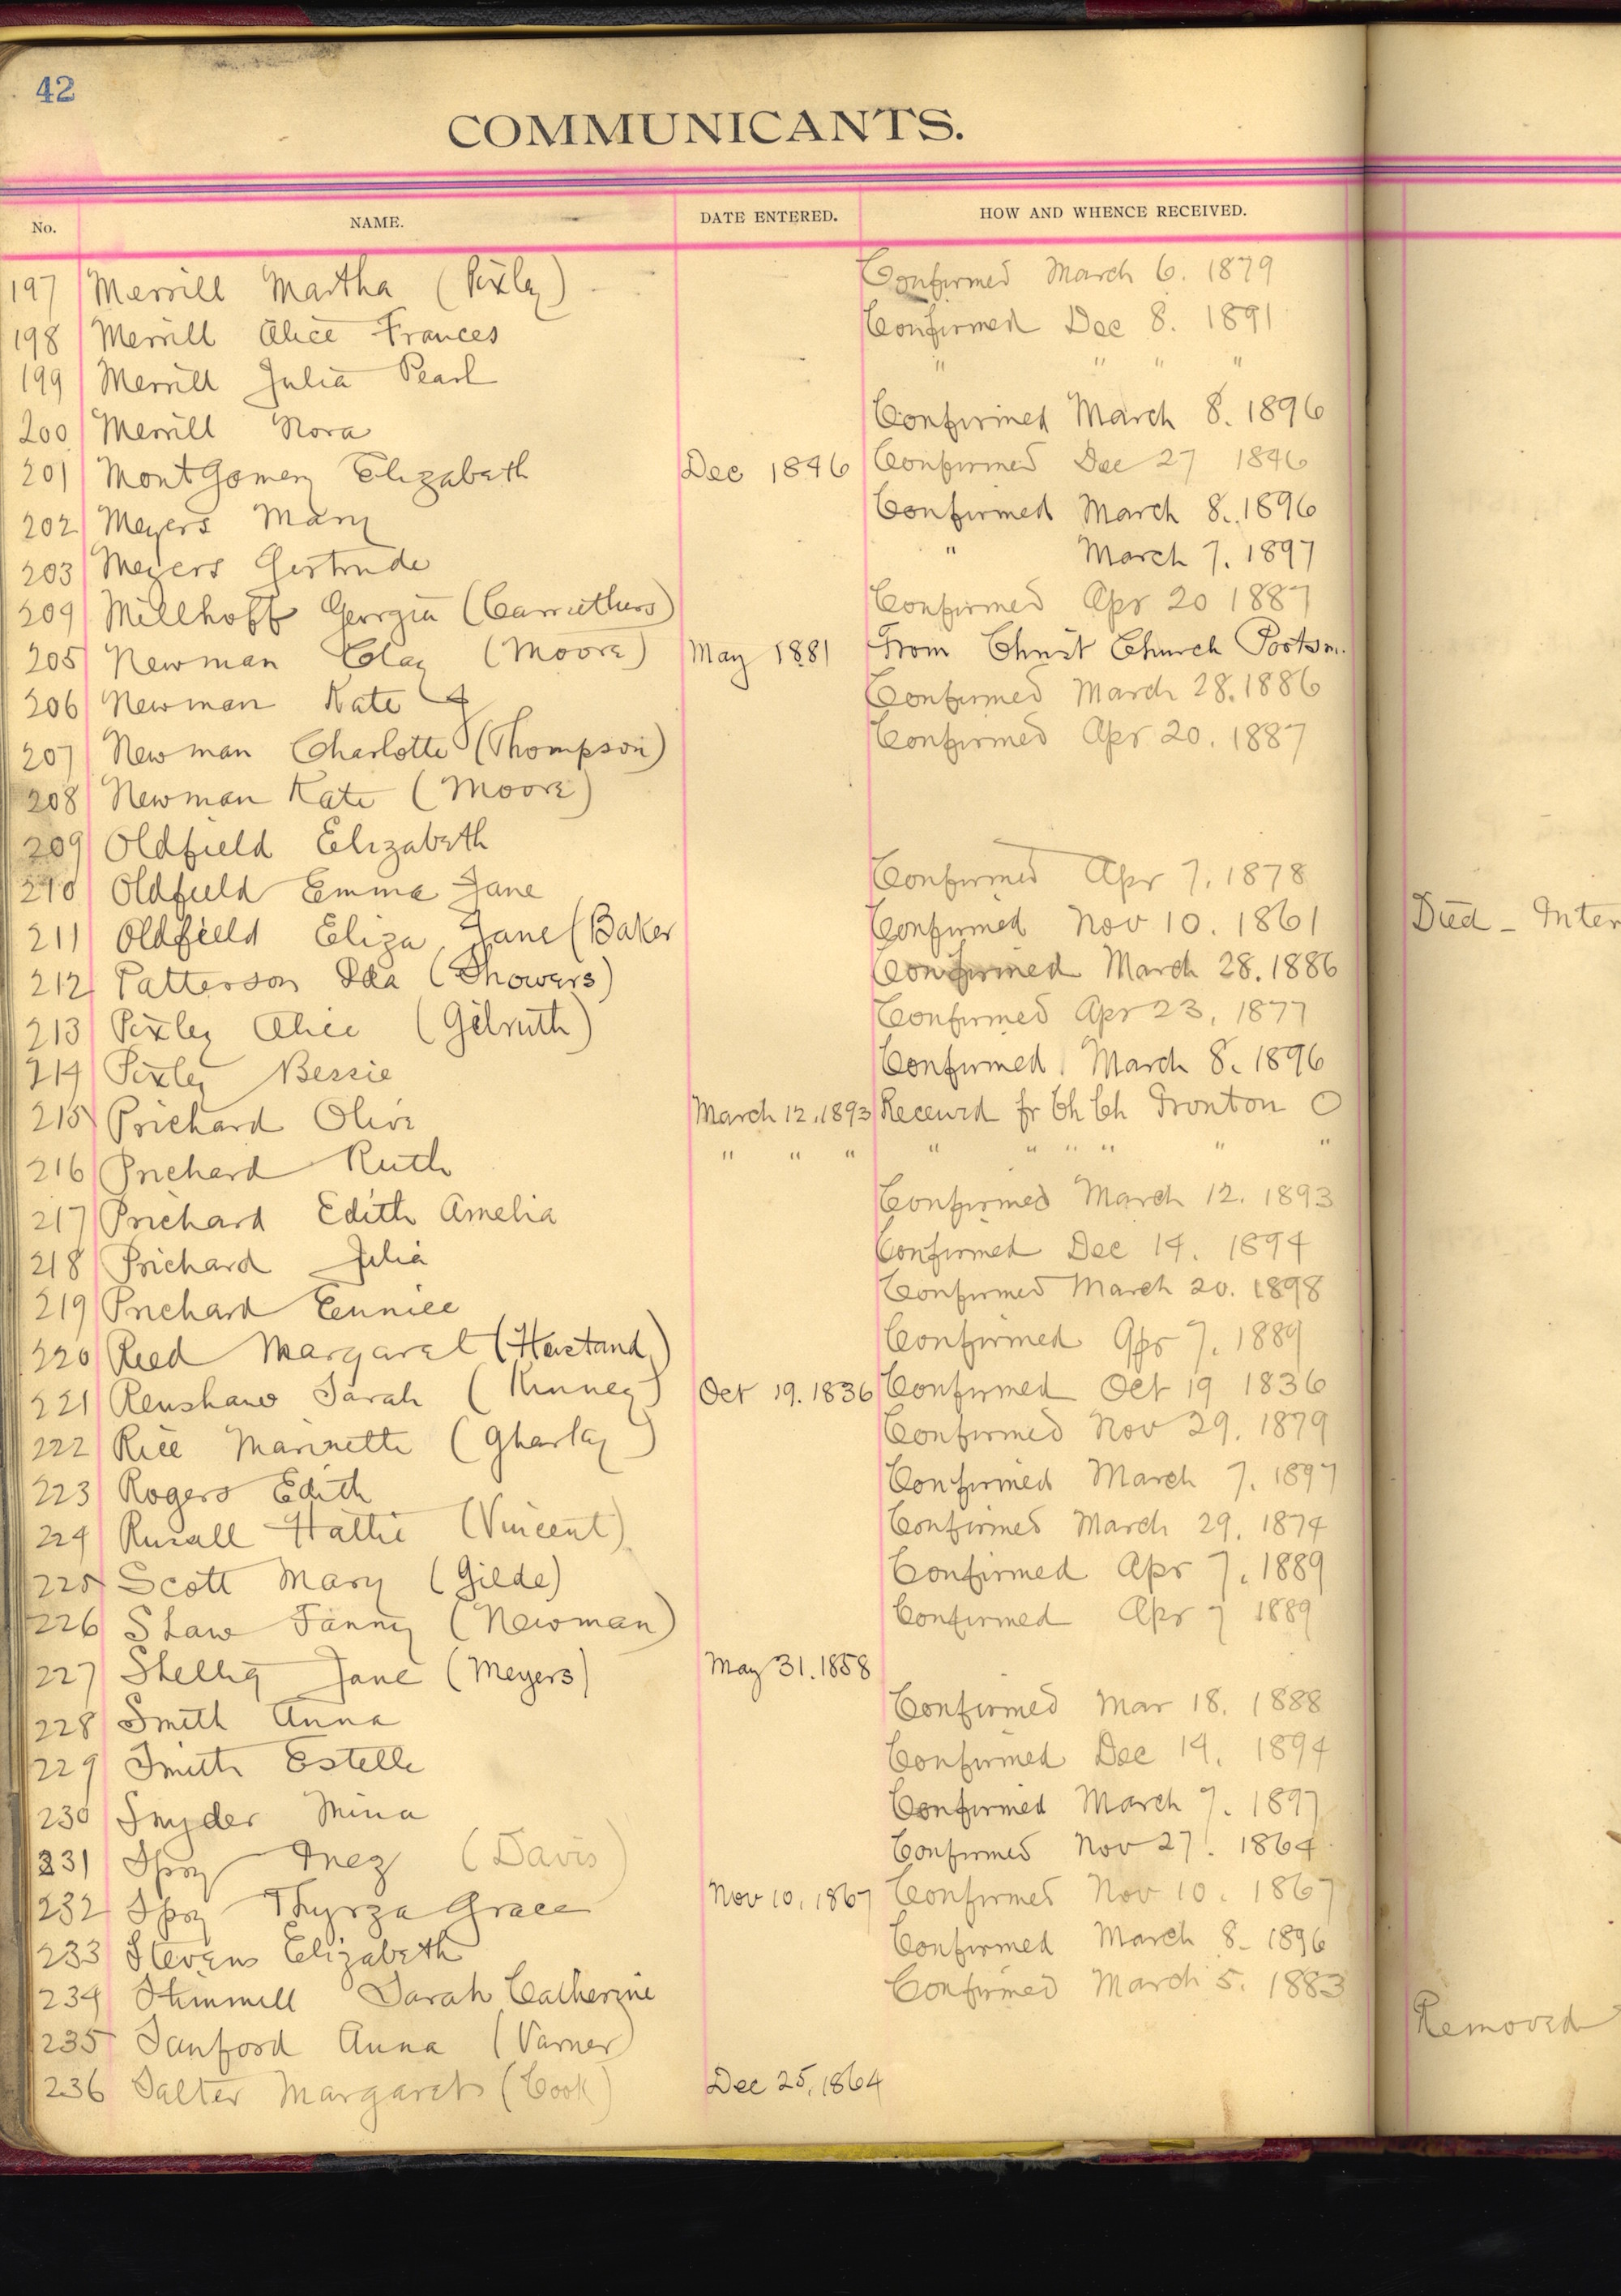 42
COMMUNICANTS.
No. NAME. DATE ENTERED. HOW AND WHENCE RECEIVED.
197 Merrill Martha (Pixley) Confirmed March 6. 1879
198 Merrill Alice Frances Confirmed Dec 8. 1891
199 Merrill Julia Pearl " " " "
200 Merrill Nora Confirmed March 8. 1896
201 Montgomery Elizabeth Dec 1846 Confirmed Dec 27 1846
202 Meyers Mary Confirmed March 8. 1896
203 Meyers Gertrude " March 7. 1897
204 Millhoff Georgia (Carruthers) Confirmed Apr 20 1887
205 Newman Clay (Moore) May 1881 From Christ Church Portsm.
206 Newman Kate J Confirmed March 28. 1886
207 Newman Charlotte (Thompson) Confirmed Apr 20. 1887
208 Newman Kate (Moore)
209 Oldfield Elizabeth
210 Oldfield Emma Jane Confirmed Apr 7. 1878
211 Oldfield Eliza Jane (Baker Confirmed Nov 10. 1861 Died - Inter
212 Patterson Ida (Showers) Confirmed March 28. 1886
213 Pixley Alice (Gilruth) Confirmed Apr 23, 1877
214 Pixley Bessie Confirmed March 8. 1896
215 Prichard Olive March 12. 1893 Received fr Ch Ch Ironton O
216 Prichard Ruth " " " " " " " " "
217 Prichard Edith Amelia Confirmed March 12. 1893
218 Prichard Julia Confirmed Dec 14. 1894
219 Prichard Eunice Confirmed March 20. 1898
220 Reed Margaret (Haistand) Confirmed Apr 7. 1889
221 Renshaw Sarah (Kinney) Oct 19. 1836 Confirmed Oct 19 1836
222 Rice Marinette (Gharky) Confirmed Nov 29. 1879
223 Rogers Edith Confirmed March 7. 1897
224 Hattie (Vincent) Confirmed March 29. 1874
225 Scott Mary (Gilde) Confirmed Apr 7. 1889
226 Shaw Fanny (Newman) Confirmed Apr 7 1889
227 Shellig Jane (Meyers) May 31. 1858
228 Smith Anna Confirmed Mar 18. 1888
229 Smith Estelle Confirmed Dec 14. 1894
230 Snyder Mina Confirmed March 7. 1897
231 Spry Inez (Davis) Confirmed Nov 27. 1864
232 Spry Thyrza Grace Nov 10, 1867 Confirmed Nov 10. 1867
233 Stevens Elizabeth Confirmed March 8- 1896
234 Stimmell Sarah Catherine Confirmed March 5. 1883
235 Sanford Anna (Varner) Removed
236 Salter Margaret (Cook) Dec 25, 1864